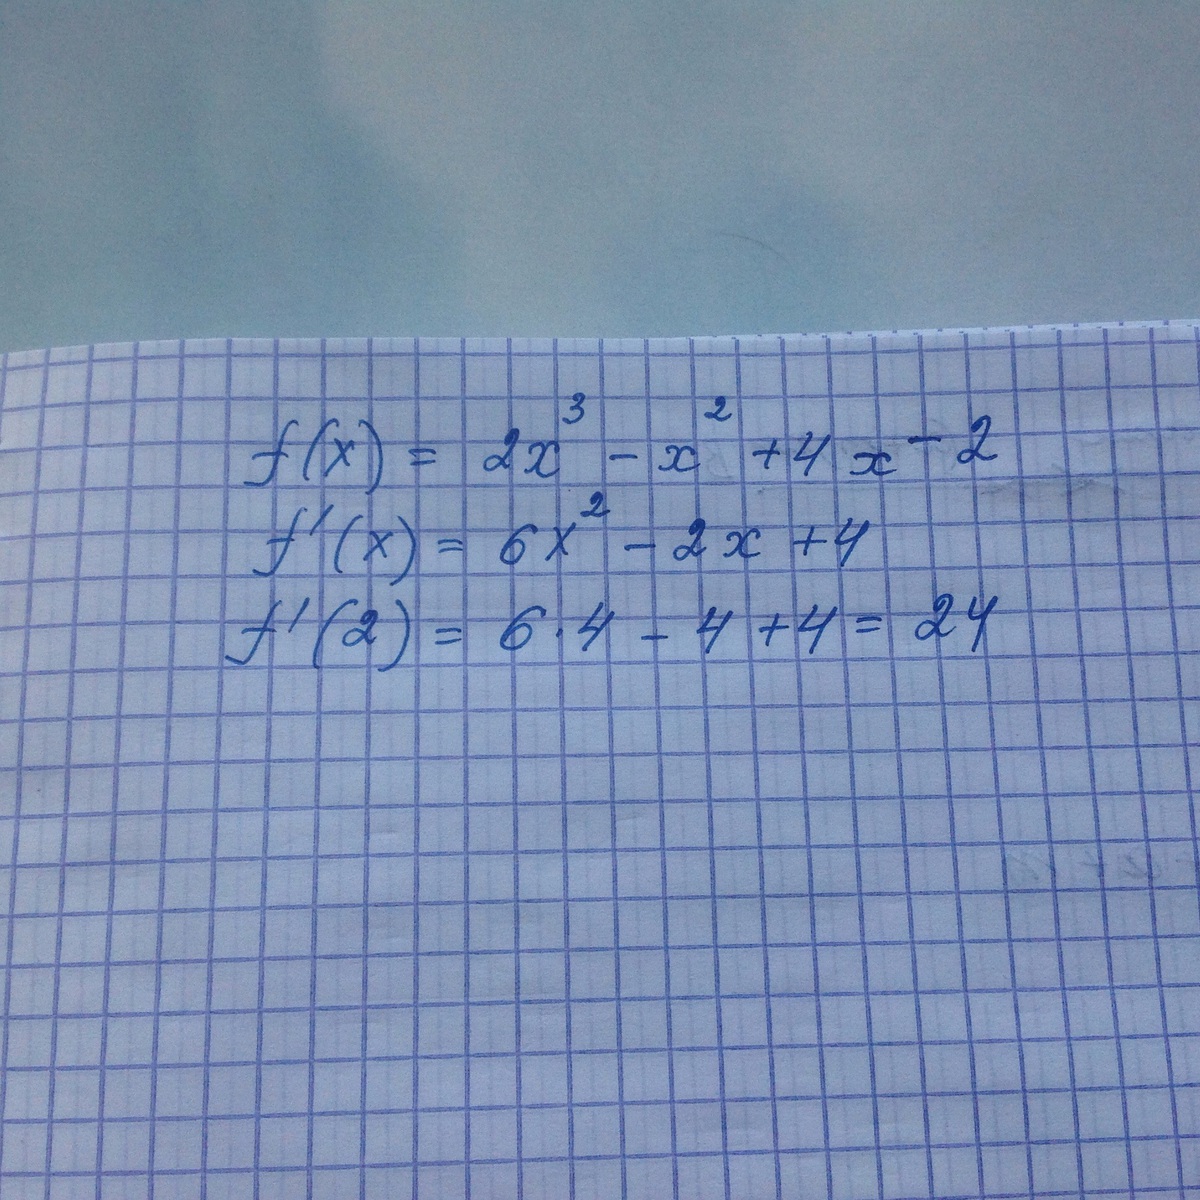 f(x) = 2x³ - x² + 4x - 2
f'(x) = 6x² - 2x + 4
f'(2) = 6·4 - 4 + 4 = 24